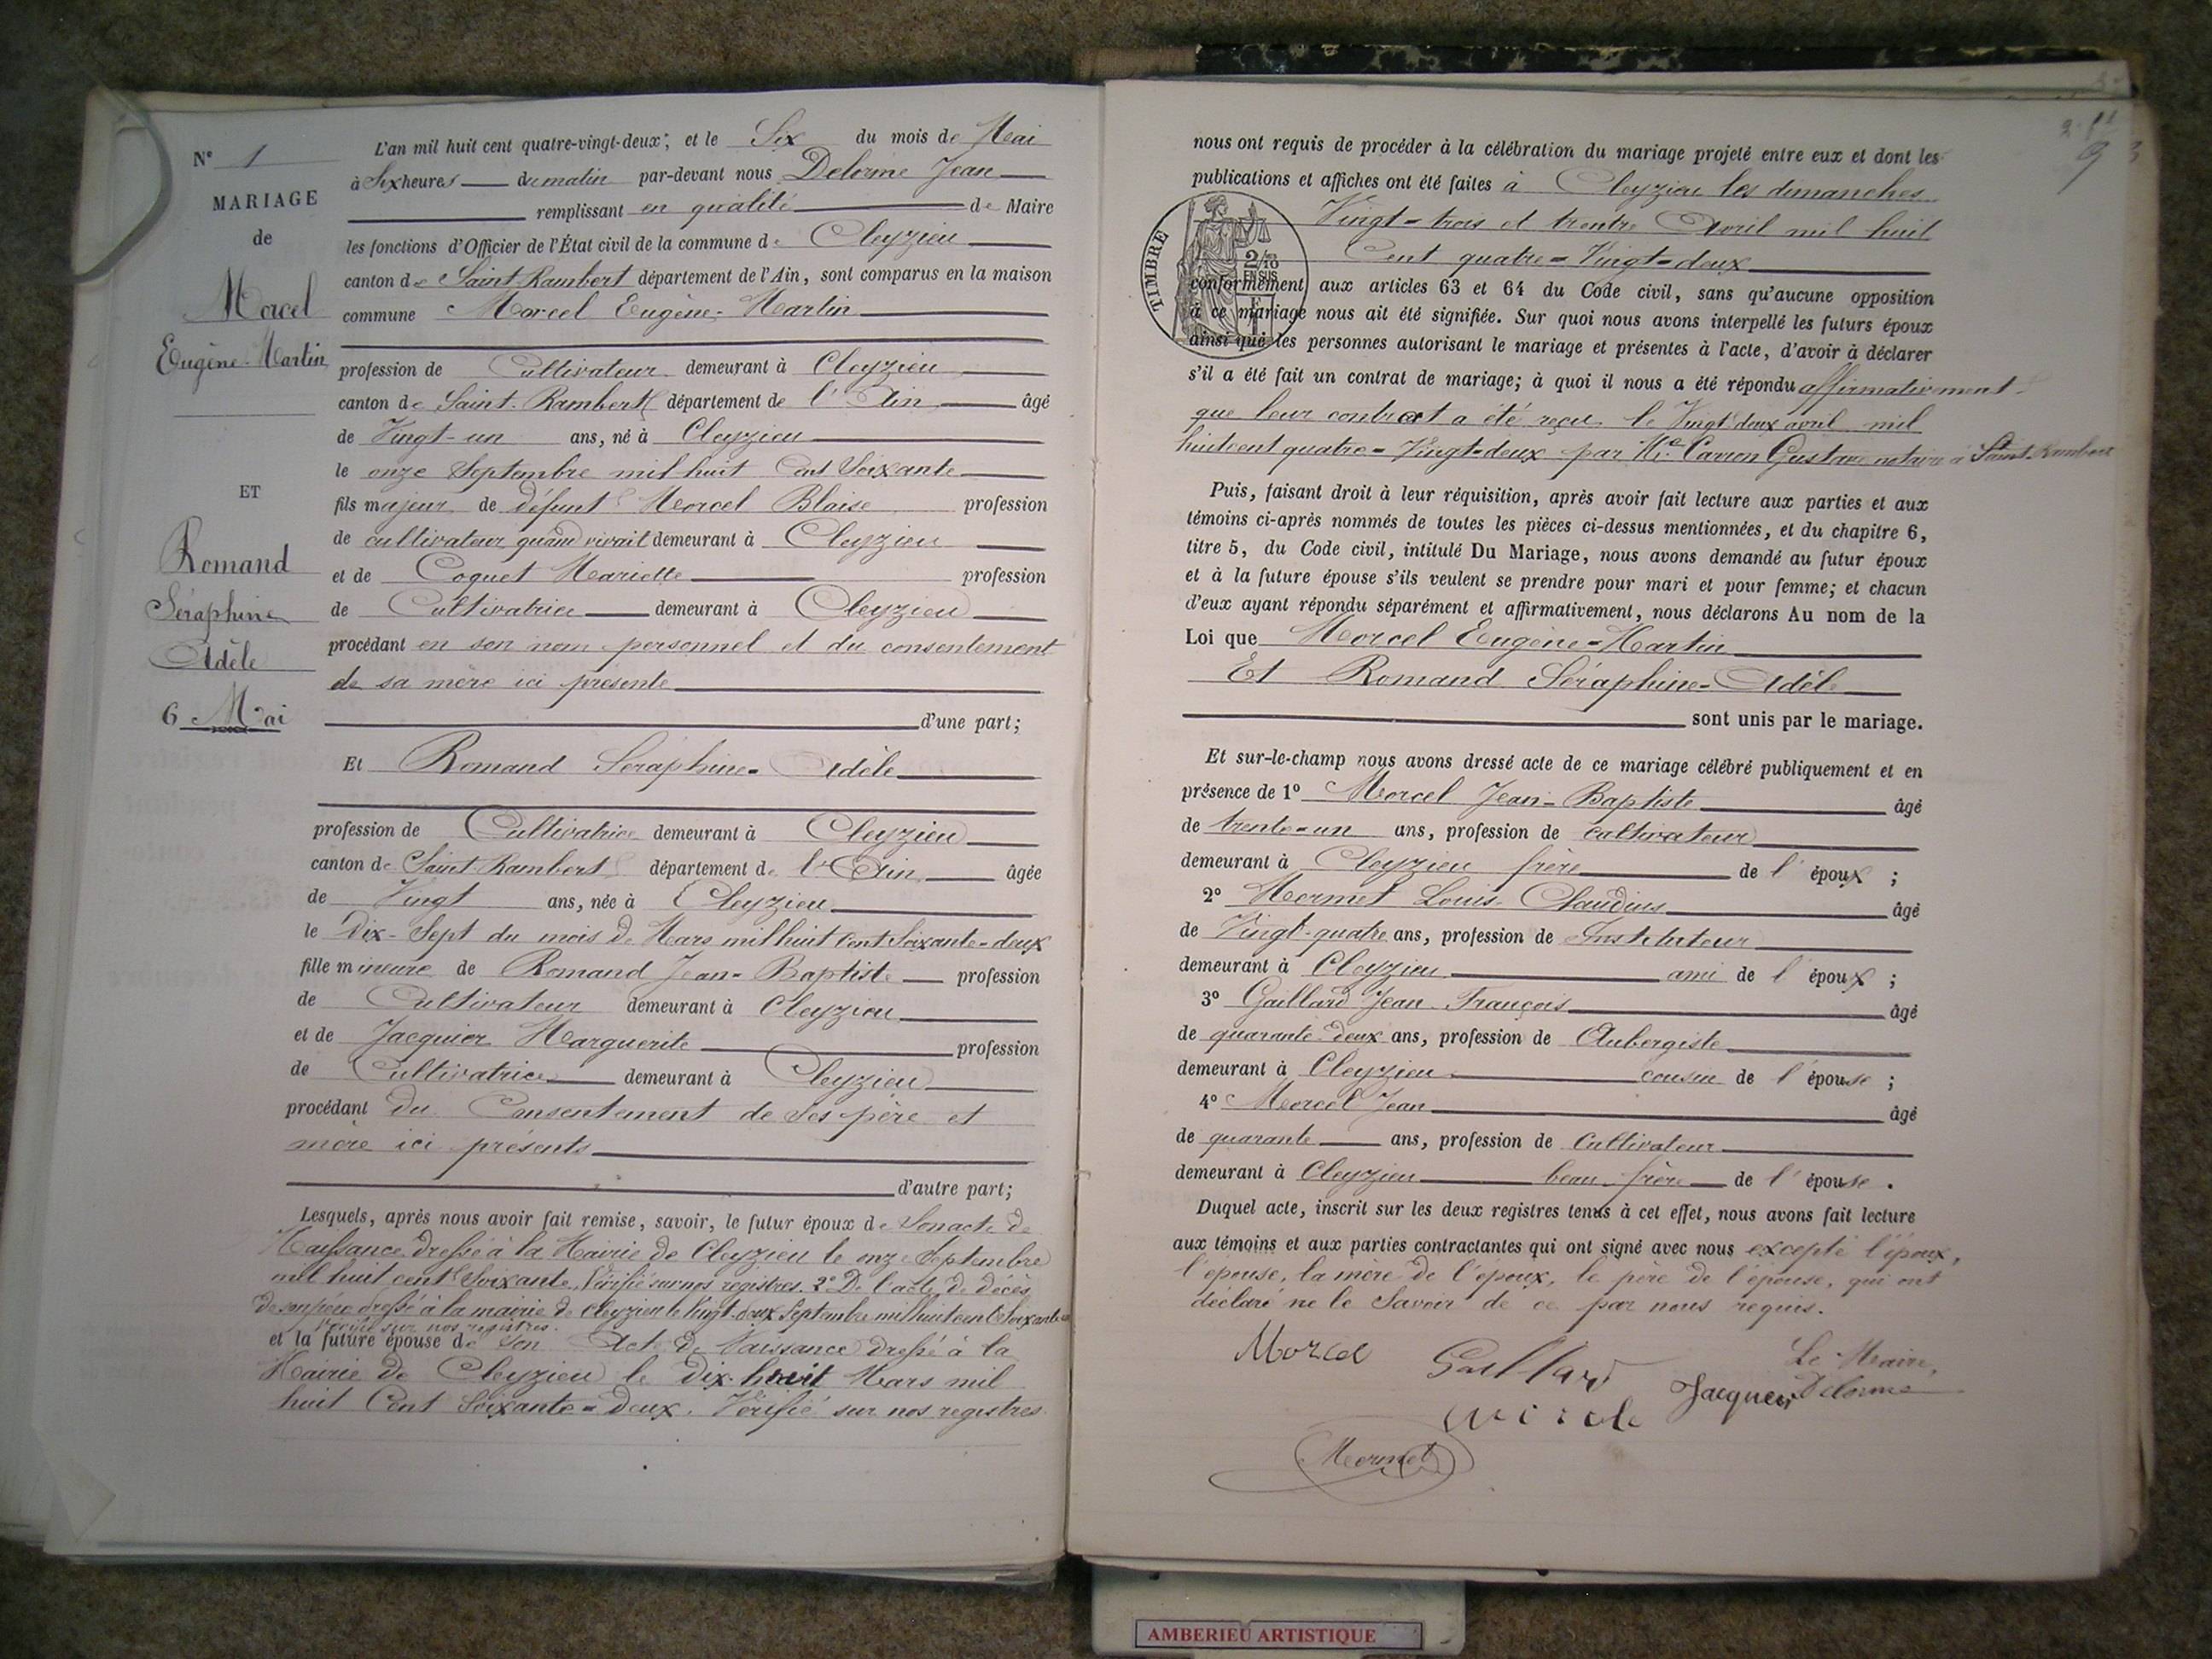 N° 1
MARIAGE
de
Morcel
Eugène-Martin
ET
Romand
Séraphine
Adèle
6 Mai
L'an mil huit cent quatre-vingt-deux, et le Six du mois de Mai
à Six heures du matin par-devant nous Delorme Jean
remplissant en qualité de Maire
les fonctions d'Officier de l'État civil de la commune de Cleyzieu
canton de Saint Rambert département de l'Ain, sont comparus en la maison
commune Morcel Eugène-Martin
profession de Cultivateur demeurant à Cleyzieu
canton de Saint-Rambert département de l'Ain âgé
de Vingt-un ans, né à Cleyzieu
le onze Septembre mil huit Cent Soixante
fils majeur de défunt Morcel Blaise profession
de cultivateur quand vivait demeurant à Cleyzieu
et de Coquet Mariette profession
de Cultivatrice demeurant à Cleyzieu
procédant en son nom personnel et du consentement
de sa mère ici présente
d'une part;
Et Romand Séraphine-Adèle
profession de Cultivatrice demeurant à Cleyzieu
canton de Saint-Rambert département de l'Ain âgée
de Vingt ans, née à Cleyzieu
le Dix-Sept du mois de Mars mil huit Cent Soixante-deux
fille mineure de Romand Jean-Baptiste profession
de Cultivateur demeurant à Cleyzieu
et de Jacquier Marguerite profession
de Cultivatrice demeurant à Cleyzieu
procédant du Consentement de Ses père et
mère ici présents
d'autre part;
Lesquels, après nous avoir fait remise, savoir, le futur époux de Son acte de
Naissance dressé à la Mairie de Cleyzieu le onze Septembre
mil huit cent Soixante. Vérifié sur nos registres. 2° De l'acte de décès
de son père dressé à la mairie de Cleyzieu le Vingt-deux Septembre mil huit cent Soixante
Vérifié sur nos registres.
et la future épouse de son Acte de Naissance dressé à la
Mairie de Cleyzieu le Dix-huit Mars mil
huit Cent Soixante-Deux. Vérifié sur nos registres.
9
nous ont requis de procéder à la célébration du mariage projeté entre eux et dont les
publications et affiches ont été faites à Cleyzieu les dimanches
Vingt-trois et trente Avril mil huit
Cent quatre-Vingt-deux
TIMBRE
2/10
EN SUS
conformément aux articles 63 et 64 du Code civil, sans qu'aucune opposition
à ce mariage nous ait été signifiée. Sur quoi nous avons interpellé les futurs époux
ainsi que les personnes autorisant le mariage et présentes à l'acte, d'avoir à déclarer
s'il a été fait un contrat de mariage; à quoi il nous a été répondu affirmativement
que leur contrat a été reçu le Vingt deux avril mil
huit cent quatre-Vingt-deux par Me Carron Gustave notaire à Saint-Rambert
Puis, faisant droit à leur réquisition, après avoir fait lecture aux parties et aux
témoins ci-après nommés de toutes les pièces ci-dessus mentionnées, et du chapitre 6,
titre 5, du Code civil, intitulé Du Mariage, nous avons demandé au futur époux
et à la future épouse s'ils veulent se prendre pour mari et pour femme; et chacun
d'eux ayant répondu séparément et affirmativement, nous déclarons Au nom de la
Loi que Morcel Eugène-Martin
Et Romand Séraphine-Adèle
sont unis par le mariage.
Et sur-le-champ nous avons dressé acte de ce mariage célébré publiquement et en
présence de 1° Morcel Jean-Baptiste âgé
de trente-un ans, profession de cultivateur
demeurant à Cleyzieu frère de l'époux ;
2° Mermet Louis-Claudius âgé
de Vingt-quatre ans, profession de Instituteur
demeurant à Cleyzieu ami de l'époux ;
3° Gaillard Jean François âgé
de quarante-deux ans, profession de Aubergiste
demeurant à Cleyzieu cousin de l'épouse ;
4° Morcel Jean âgé
de quarante ans, profession de Cultivateur
demeurant à Cleyzieu beau-frère de l'épouse .
Duquel acte, inscrit sur les deux registres tenus à cet effet, nous avons fait lecture
aux témoins et aux parties contractantes qui ont signé avec nous excepté l'époux,
l'épouse, la mère de l'époux, le père de l'épouse, qui ont
déclaré ne le Savoir de ce par nous requis.
Morcel
Gaillard
Le Maire,
Jacquier
Delorme
Mermet
AMBERIEU ARTISTIQUE